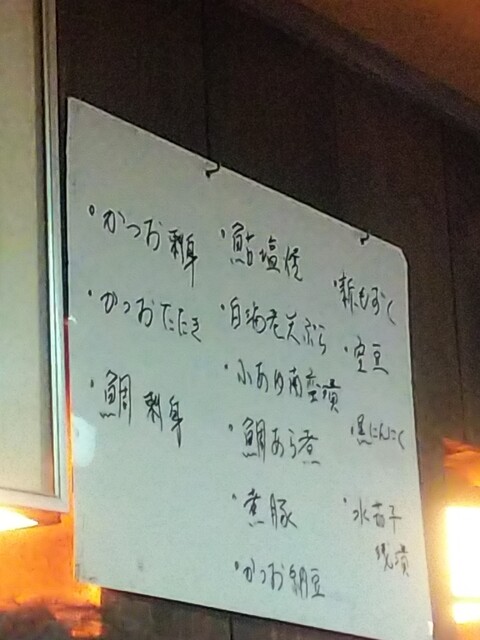 ・かつお刺身
・かつおたたき
・鯛刺身
・鮎塩焼
・白海老天ぷら
・小あゆ南蛮漬
・鯛あら煮
・煮豚
・かつお納豆
・新もずく
・空豆
・黒にんにく
・水茄子
浅漬